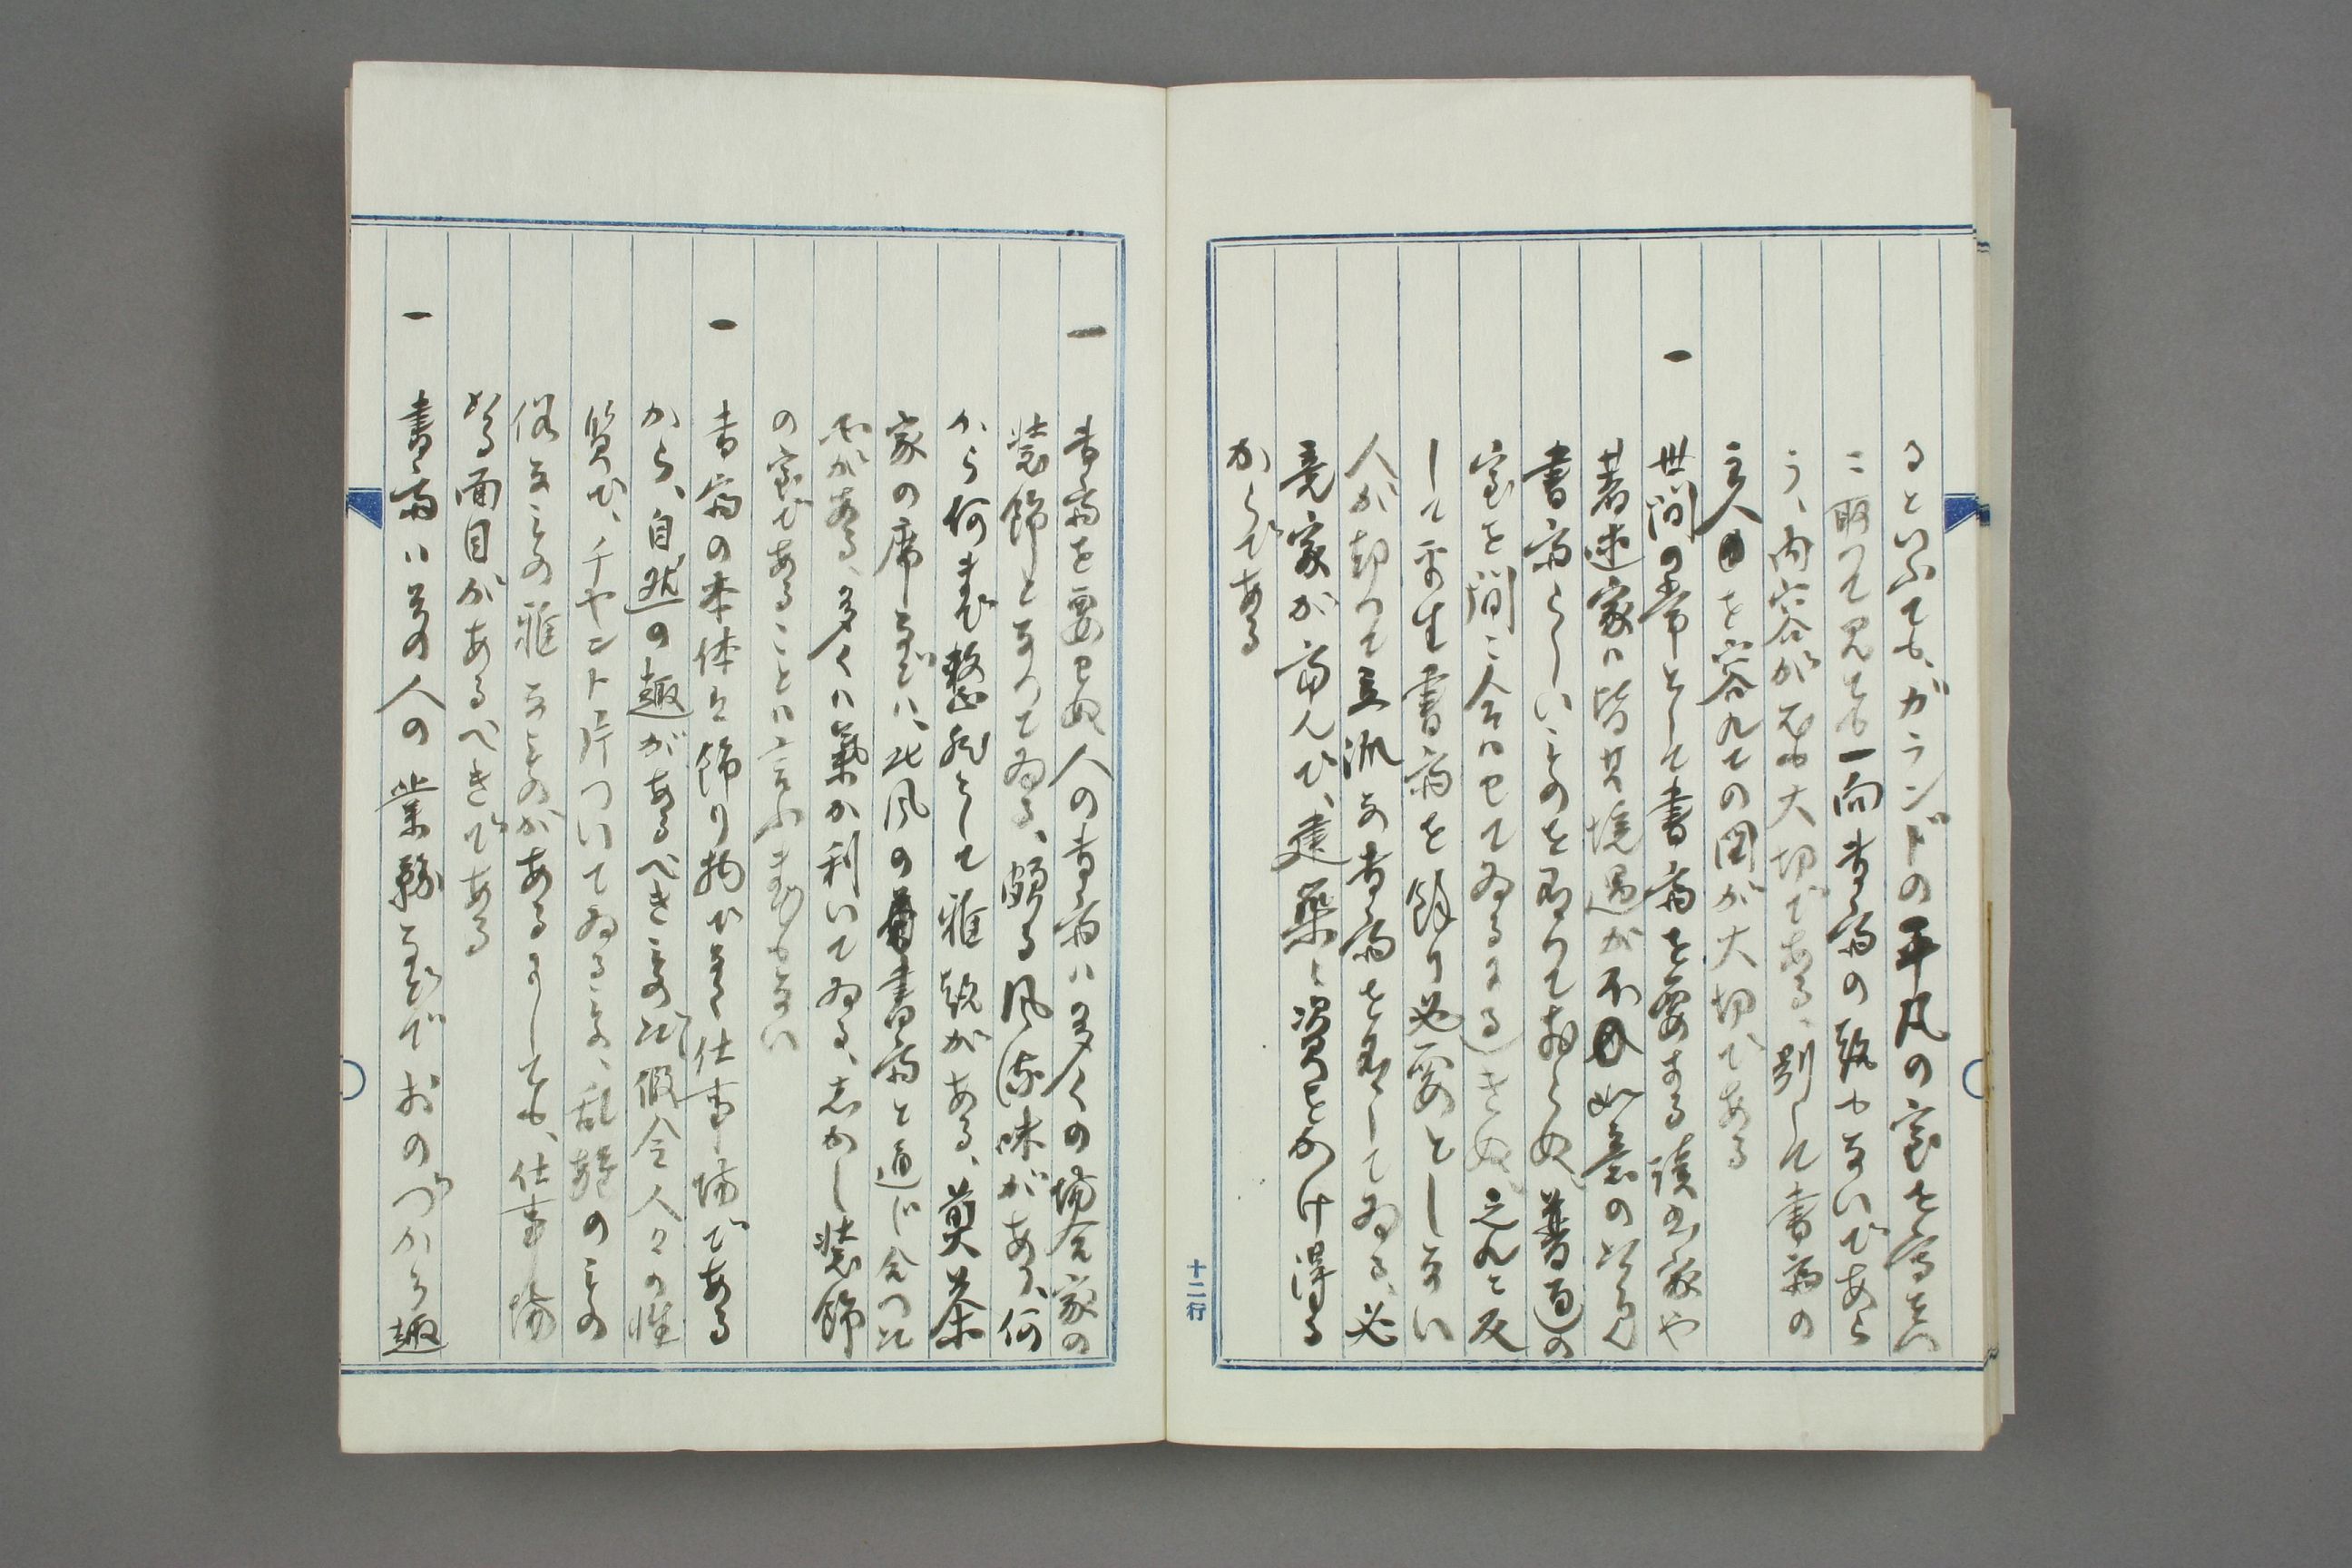 るといふても、ガランドの平凡の室を寫真
に取つて見ても一向書斎の趣がないであら
う、内容が尤も大切である、別して書斎の
主人を容れての図が大切である
一 世間の常として書斎を要する読書家や
著述家は皆其境遇が不如意の
書斎らしいものを有りておらぬ、普通の
室を間に合はせてゐるにきぬ、之れに反
して平生書斎を餘り必要としない
人が却つて立派な書斎を有してゐる、必
竟家が富んで、建築に資をかけ得る
からである
一 書斎を要せぬ人の書斎は多くの場合家の
装飾となつてゐる、頗る風流味がある、何
から何まで整然として雅趣がある、煎茶
家の席などは、此風の書斎と通じ合つた
所がある、多くは氣が利いてゐる、しかし装飾
の室であることは言ふまでもない
一 書斎の本体は飾り物でなく仕事場である
から、自然の趣があるべきもの故、假令人々の性
質で、チヤント片ついてゐるもの、乱雑のもの
俗なもの雅なものがあるにしても、仕事場
なる面目があるべきである
一 書斎は其の人の業務などでおのづから趣
十二行